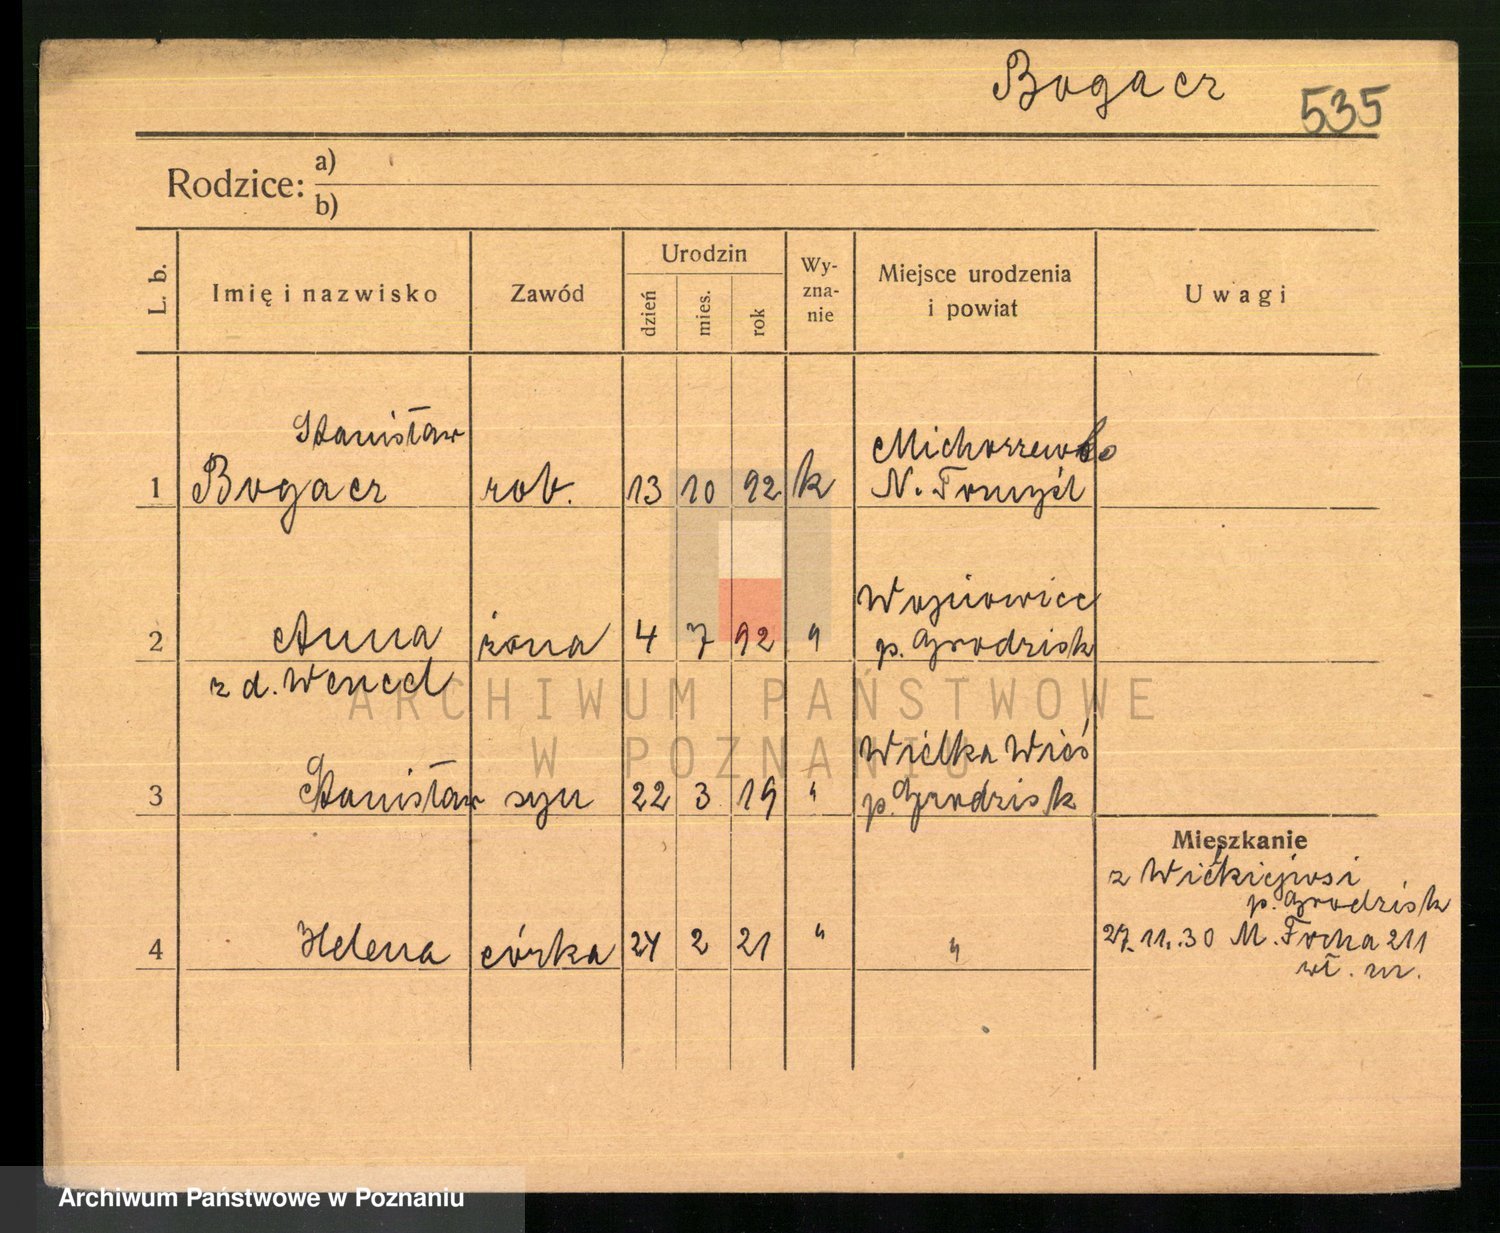 Bogacz
535
Rodzice: a)
b)
L. b.
Imię i nazwisko
Zawód
Urodzin
dzień
mies.
rok
Wy-
zna-
nie
Miejsce urodzenia
i powiat
Uwagi
Stanisław
1 Bogacz rob. 13 10 92 k Michorzewko
N. Tomyśl
2 Anna żona 4 7 92 " Wojnowice
p. Grodzisk
z d. Wencel
3 Stanisław syn 22 3 19 " Wielka Wieś
p. Grodzisk
Mieszkanie
z Wielkiejwsi
p. Grodzisk
4 Helena córka 24 2 21 " " 27.11.30 M. Focha 211
wł. m.
ARCHIWUM PAŃSTWOWE
W POZNANIU
Archiwum Państwowe w Poznaniu